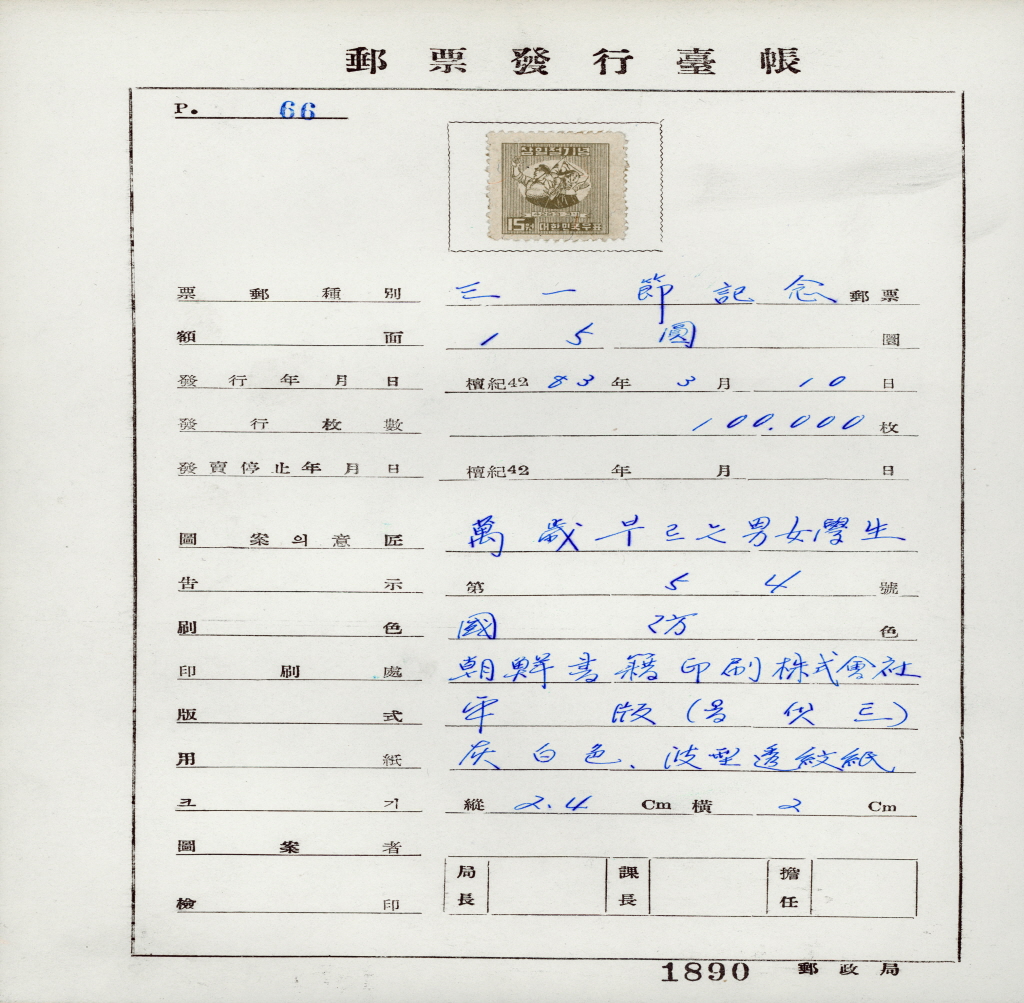 郵票發行臺帳
P. 66
삼일절기념
15원 대한민국우표
票郵種別 三一節記念 郵票
額面 15圓 圜
發行年月日 檀紀4283年3月10日
發行枚數 100.000枚
發賣停止年月日 檀紀42 年 月 日
圖案의意匠 萬歲부르는男女學生
告示 第54號
刷色 國防色
印刷處 朝鮮書籍印刷株式會社
版式 平版
用紙 灰白色、波型透紋紙
크기 縱 2.4 Cm 橫 2 Cm
圖案者
檢印 局長 課長 擔任
1890 郵政局